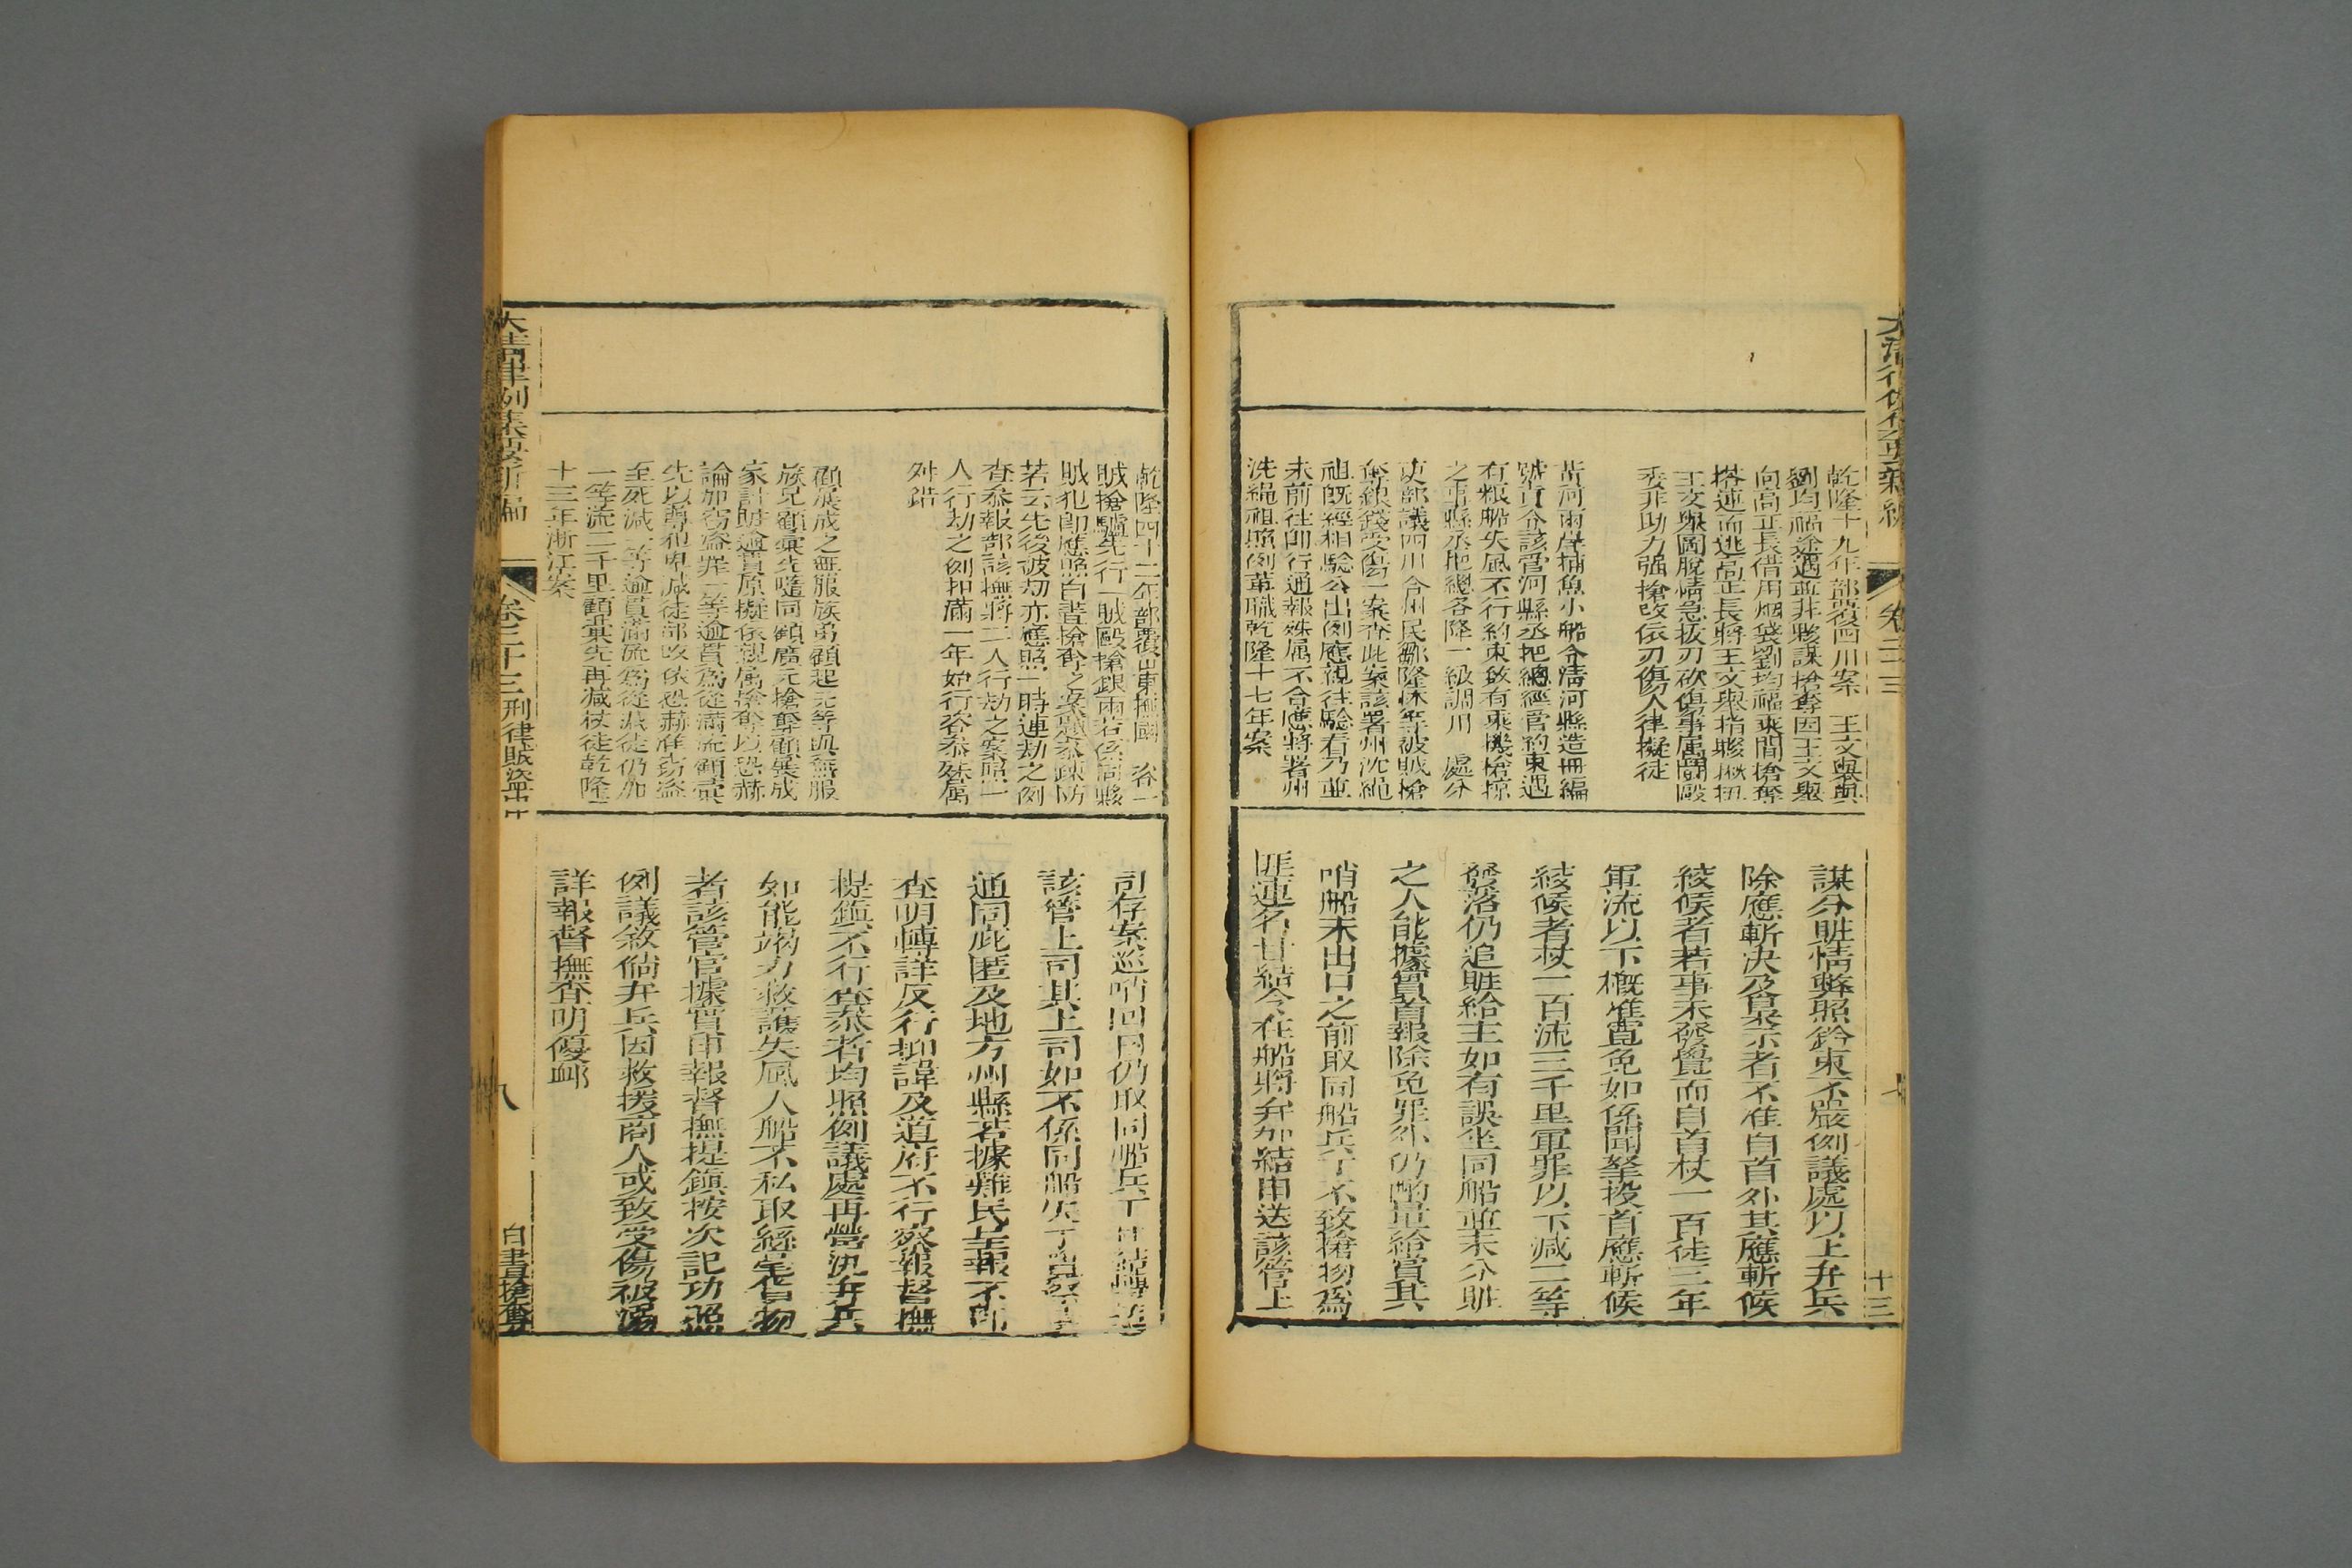 乾隆十九年部覆四川案 王文與與
劉均福途遇並非夥謀搶奪因王文與
向高正長借用烟袋劉均福乘間搶奪
搭連而逃高正長將王文與指夥揪扭
王文與圖脫情急拔刃砍傷事属鬬毆
委非助力强搶改依刃傷人律擬徒
黃河兩岸捕魚小船令清河縣造冊編
號責令該管河縣丞把總經管約束遇
有粮船失風不行約束致有乘機搶掠
之事縣丞把總各降一級調用 處分
吏部議四川合州民鄒隆怵等被賊搶
奪銀錢受傷一案查此案該署州沈繩
祖既經相驗公出例應親往驗看乃並
未前往卽行通報殊属不合應將署州
沈繩祖照例革職乾隆十七年案
謀分賍情弊照鈐束不嚴例議處以上弁兵
除應斬决及梟示者不准自首外其應斬候
絞候者若事未發覺而自首杖一百徒三年
軍流以下概准寬免如係聞拏投首應斬候
絞候者杖一百流三千里軍罪以下减二等
發落仍追賍給主如有誤坐同船並未分賍
之人能據實首報除免罪外仍酌量給賞其
哨船未出口之前取同船兵丁不致搶物爲
匪連名甘結令在船將弁加結申送該管上
卷二十三
十三
乾隆四十二年部覆山東撫國 咨一
賊搶驢先行一賊毆搶銀兩若係同夥
賊犯卽應照白晝搶奪之案題參疎防
若云先後被刧亦應照一時連劫之例
查參報部該撫將二人行劫之案照一
人行劫之例扣滿一年始行咨參殊属
舛錯
顧展成之無服族弟顧起元等與無服
族兄顧稟先隨同顧廣元搶奪顧展成
家計賍逾貫原擬依親属搶奪以恐赫
論加窃盗罪一等逾貫為從滿流顧稟
先以尊犯卑减徒部改依恐赫准窃盗
至死减一等逾貫滿流為從滿徒仍加
一等流二千里顧稟先再减杖徒乾隆三
十三年浙江案
司存案巡哨回日仍取同船兵丁甘結轉送
該管上司其上司如不係同船失于覺察
通同庇匿及地方州縣若據難民呈報不卽
查明轉詳反行抑諱及道府不行察報督撫
提鎮不行查參者均照例議處再營汛弁兵
如能竭力救護失風人船不私取絲毫貨物
者該管官據實申報督撫提鎮按次記功照
例議敘倘弁兵因救援商人或致受傷被溺
詳報督撫查明優䘏
大清律例集要新編
卷二十三刑律賊盗中
八
白晝搶奪